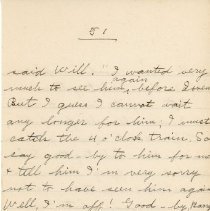 51
said Will. "I wanted very
again
much to see him, before I
But I guess I cannot wait
any longer for him; I must
catch the 4 o'clock train. So
say good-by to him for me
& tell him I'm very sorry
not to have seen him again
Well, I'm off! Good-by,